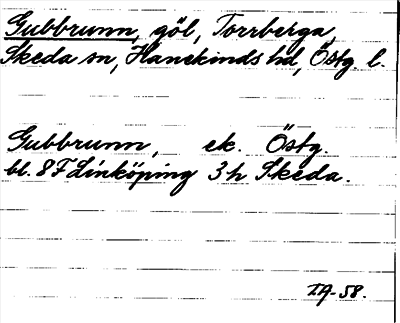 Gubbrunn, göl, Torrberga,
Skeda sn, Hanekinds hd, Östg. l.
Gubbrunn, ek. Östg.
bl. 8F Linköping 3h Skeda.
IA-58.